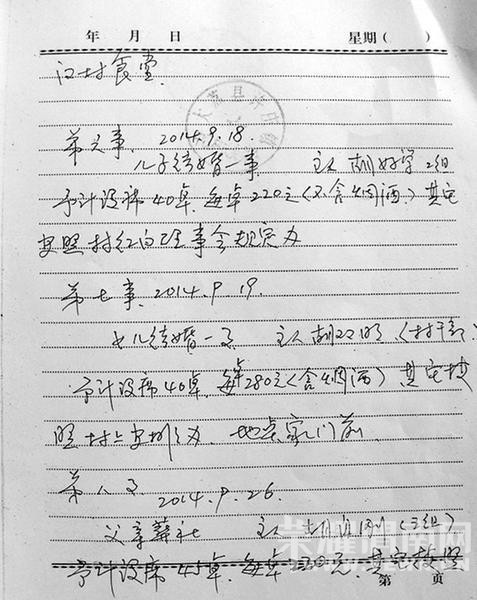 年 月 日 星期( )
江村食堂
第六事、2014.9.18.
儿子结婚一事 主人 胡好学 2组
予计设席40桌、每桌220元(不含烟酒)其它
按照村红白理事会规定办
第七事、2014.9.19.
女儿结婚一事 主人 胡 (村干部)
予计设席40桌、每桌280元(含烟酒)其它按
照村上安排办、地点家门前
第八事 2014.9.26.
父亲葬礼 主人 胡 (三组)
予计设席45桌、每桌 元、其它按照
第 页